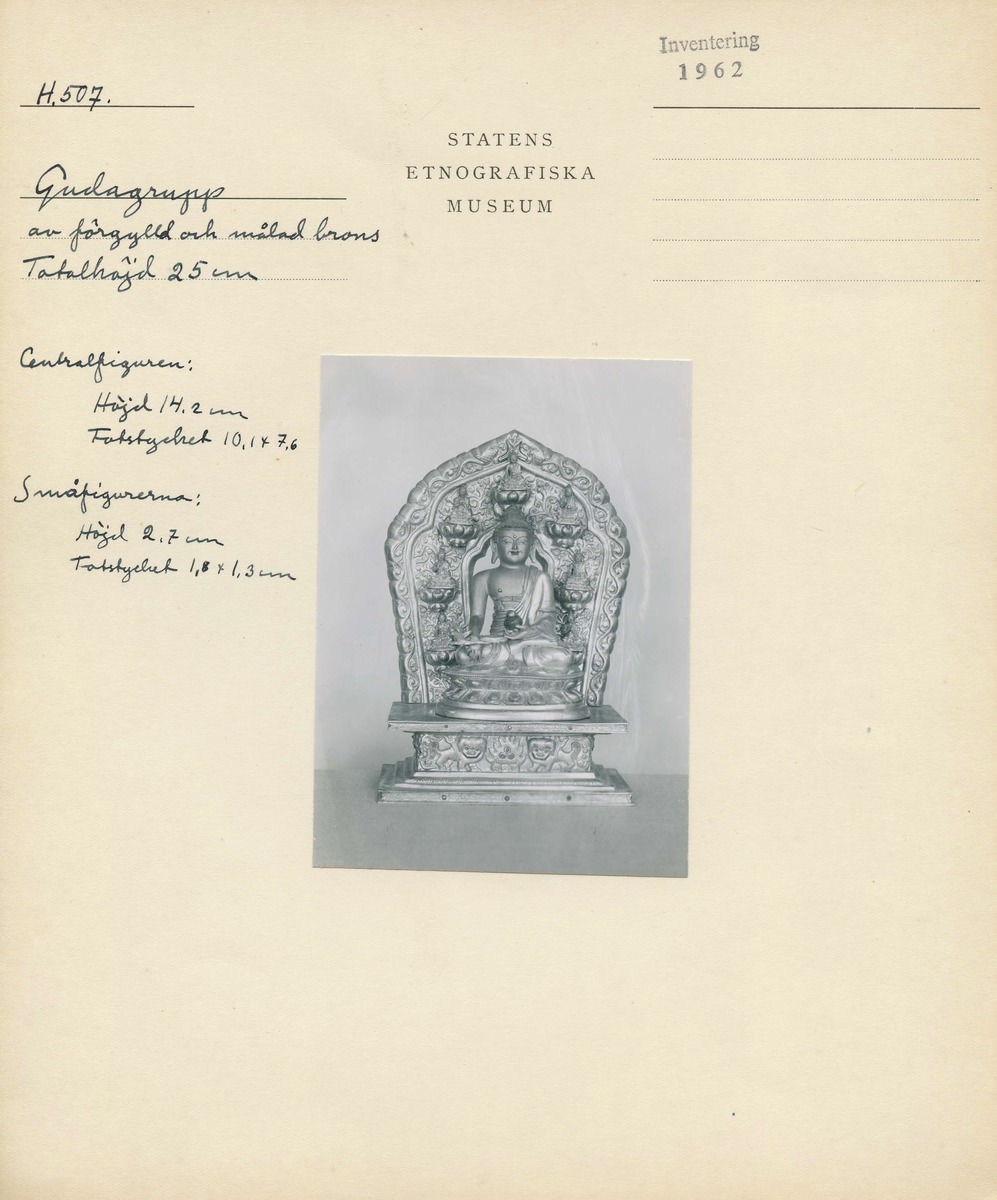 Inventering
1962
H.507.
STATENS
ETNOGRAFISKA
MUSEUM
Gudagrupp
av förgylld och målad brons
Totalhöjd 25 cm
Centralfiguren:
Höjd 14.2 cm
Fotstycket 10,1 x 7,6
Småfigurerna:
Höjd 2.7 cm
Fotstycket 1,8 x 1,3 cm